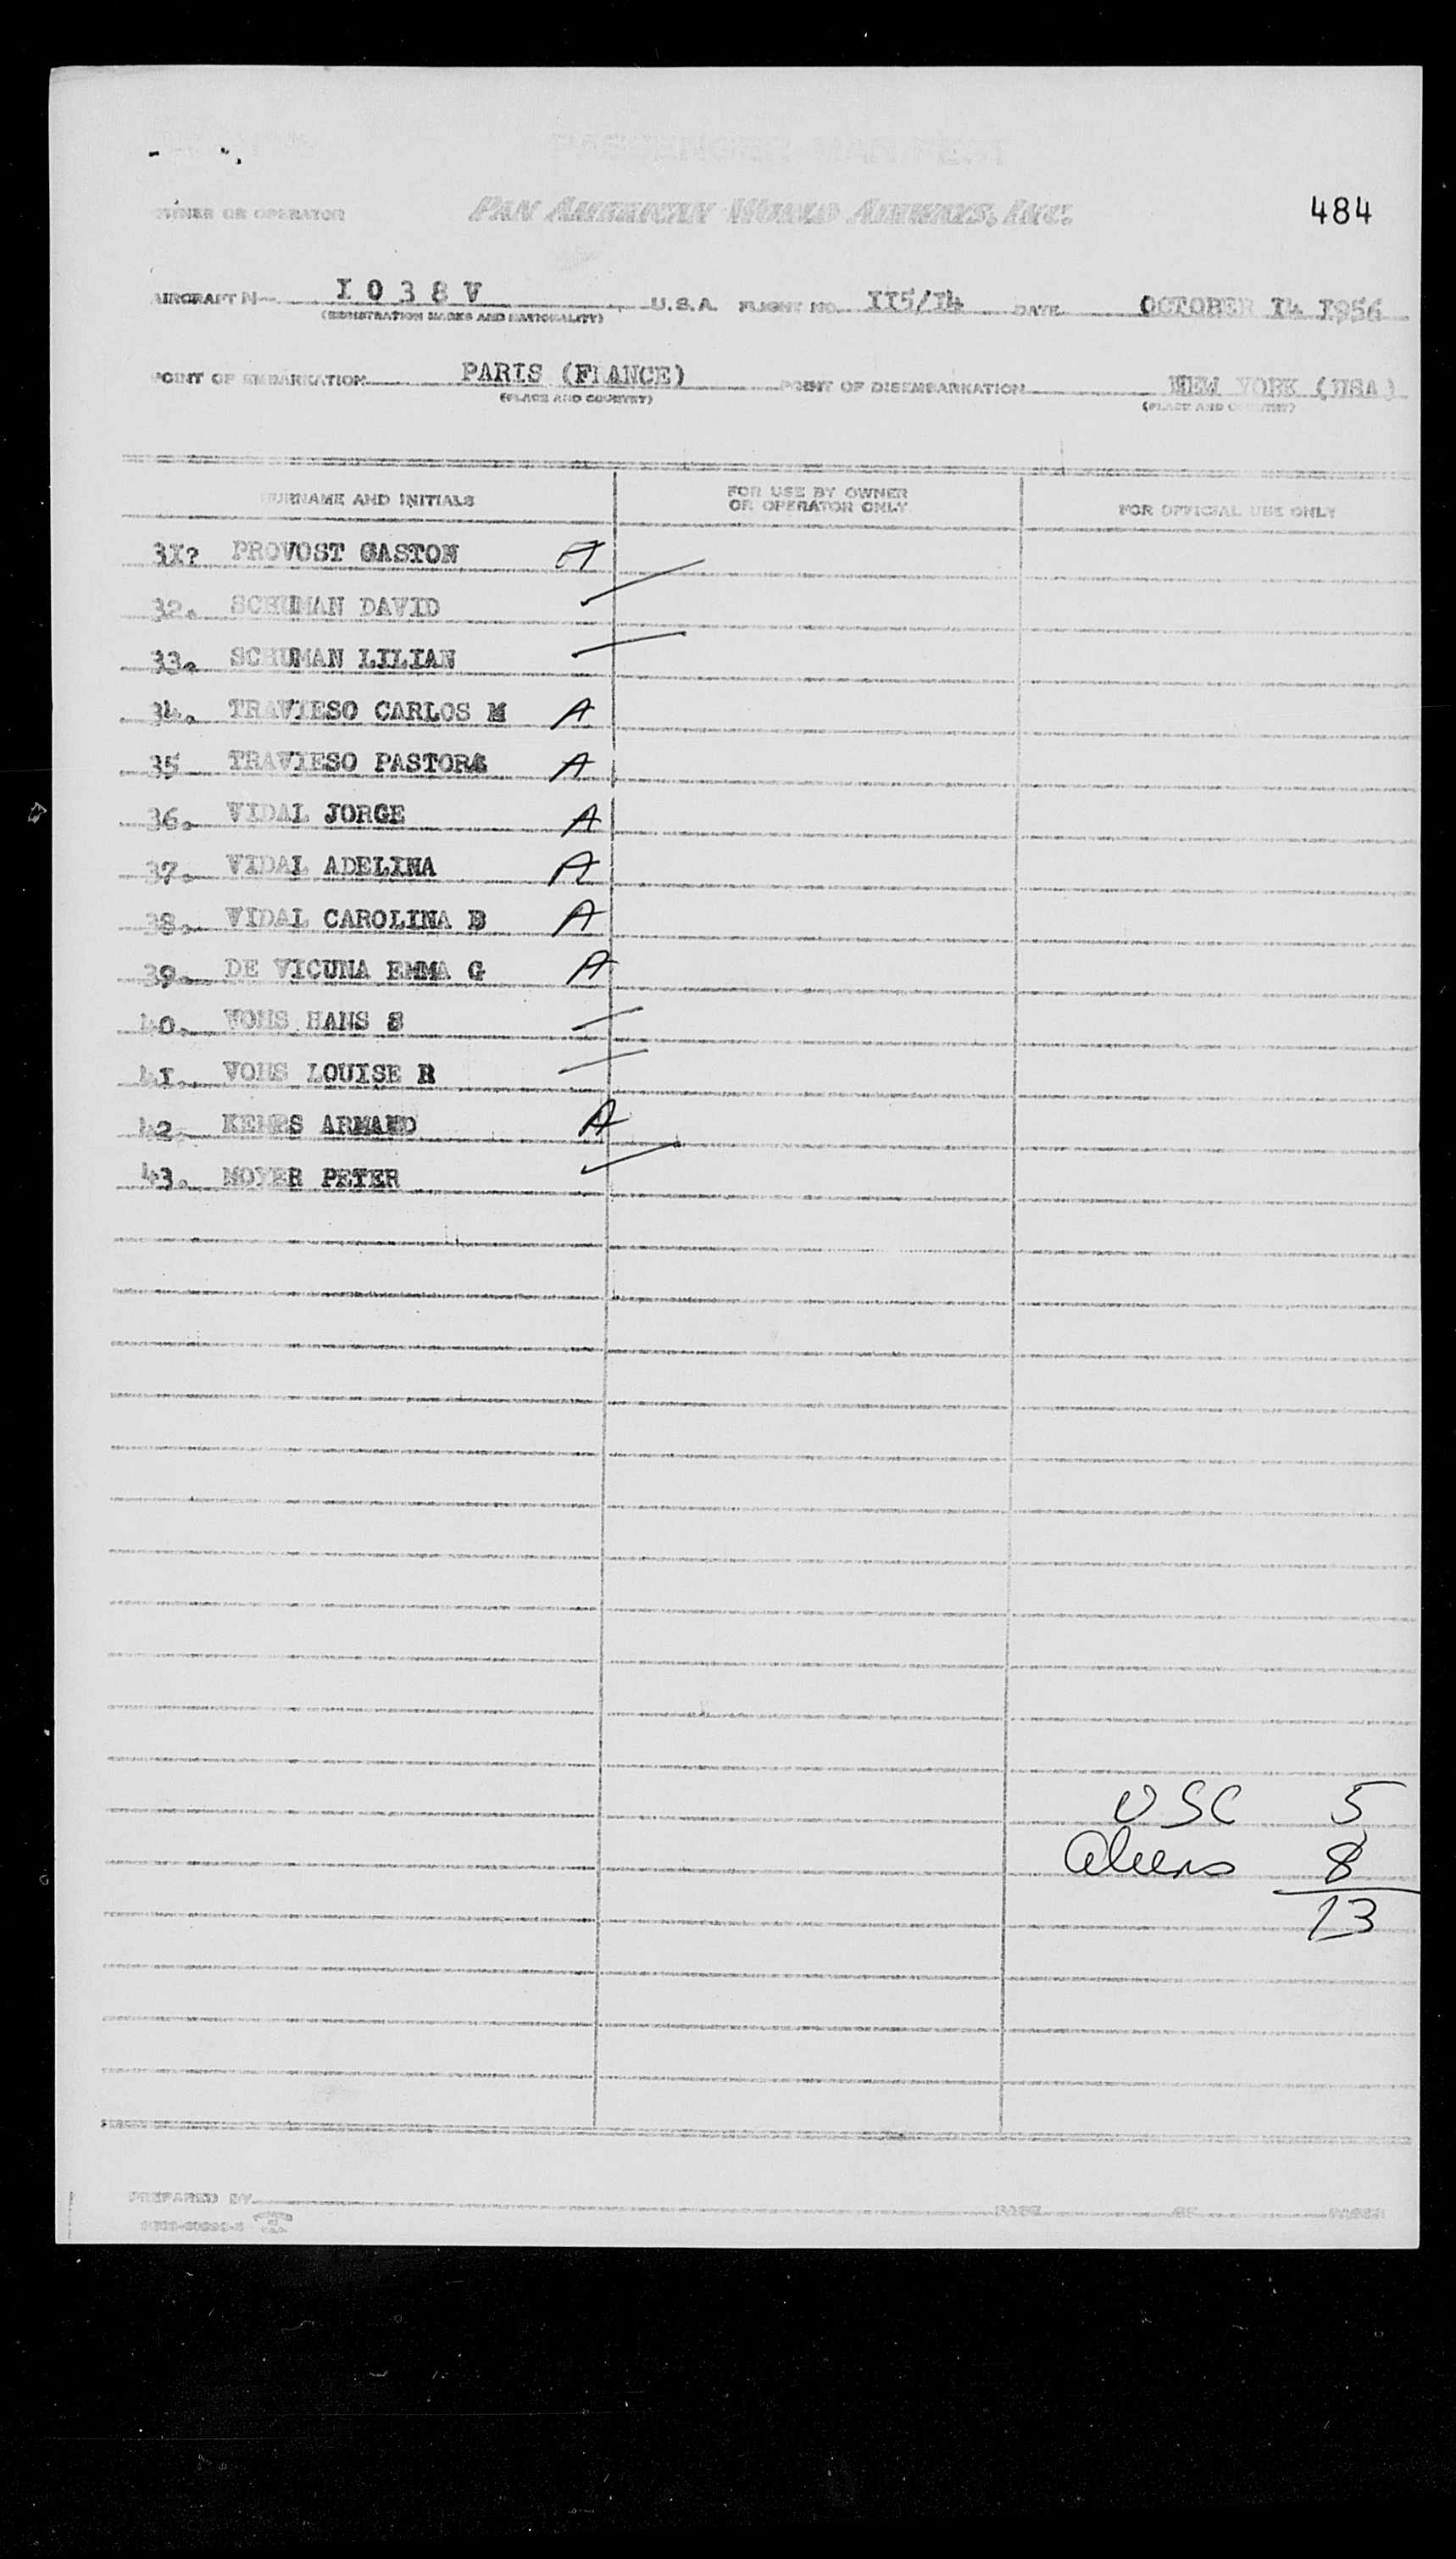 PASSENGER MANIFEST
OWNER OR OPERATOR PAN AMERICAN WORLD AIRWAYS, INC. 484
AIRCRAFT N I 0 3 8 V U.S.A. FLIGHT NO. II5/I4 DATE OCTOBER I4 I956
(REGISTRATION MARKS AND NATIONALITY)
POINT OF EMBARKATION PARIS (FRANCE) POINT OF DISEMBARKATION NEW YORK (USA)
(PLACE AND COUNTRY) (PLACE AND COUNTRY)
SURNAME AND INITIALS FOR USE BY OWNER OR OPERATOR ONLY FOR OFFICIAL USE ONLY
3I? PROVOST GASTON A
32. SCHUMAN DAVID
33. SCHUMAN LILIAN
34. TRAVIESO CARLOS M A
35 TRAVIESO PASTORA A
36. VIDAL JORGE A
37. VIDAL ADELINA A
38. VIDAL CAROLINA B A
39. DE VICUNA EMMA G A
40. HANS S
4I. LOUISE R
42. ARMAND A
43. MOYER PETER
USC 5
aliens 8
13
PREPARED BY PAGE OF PAGES